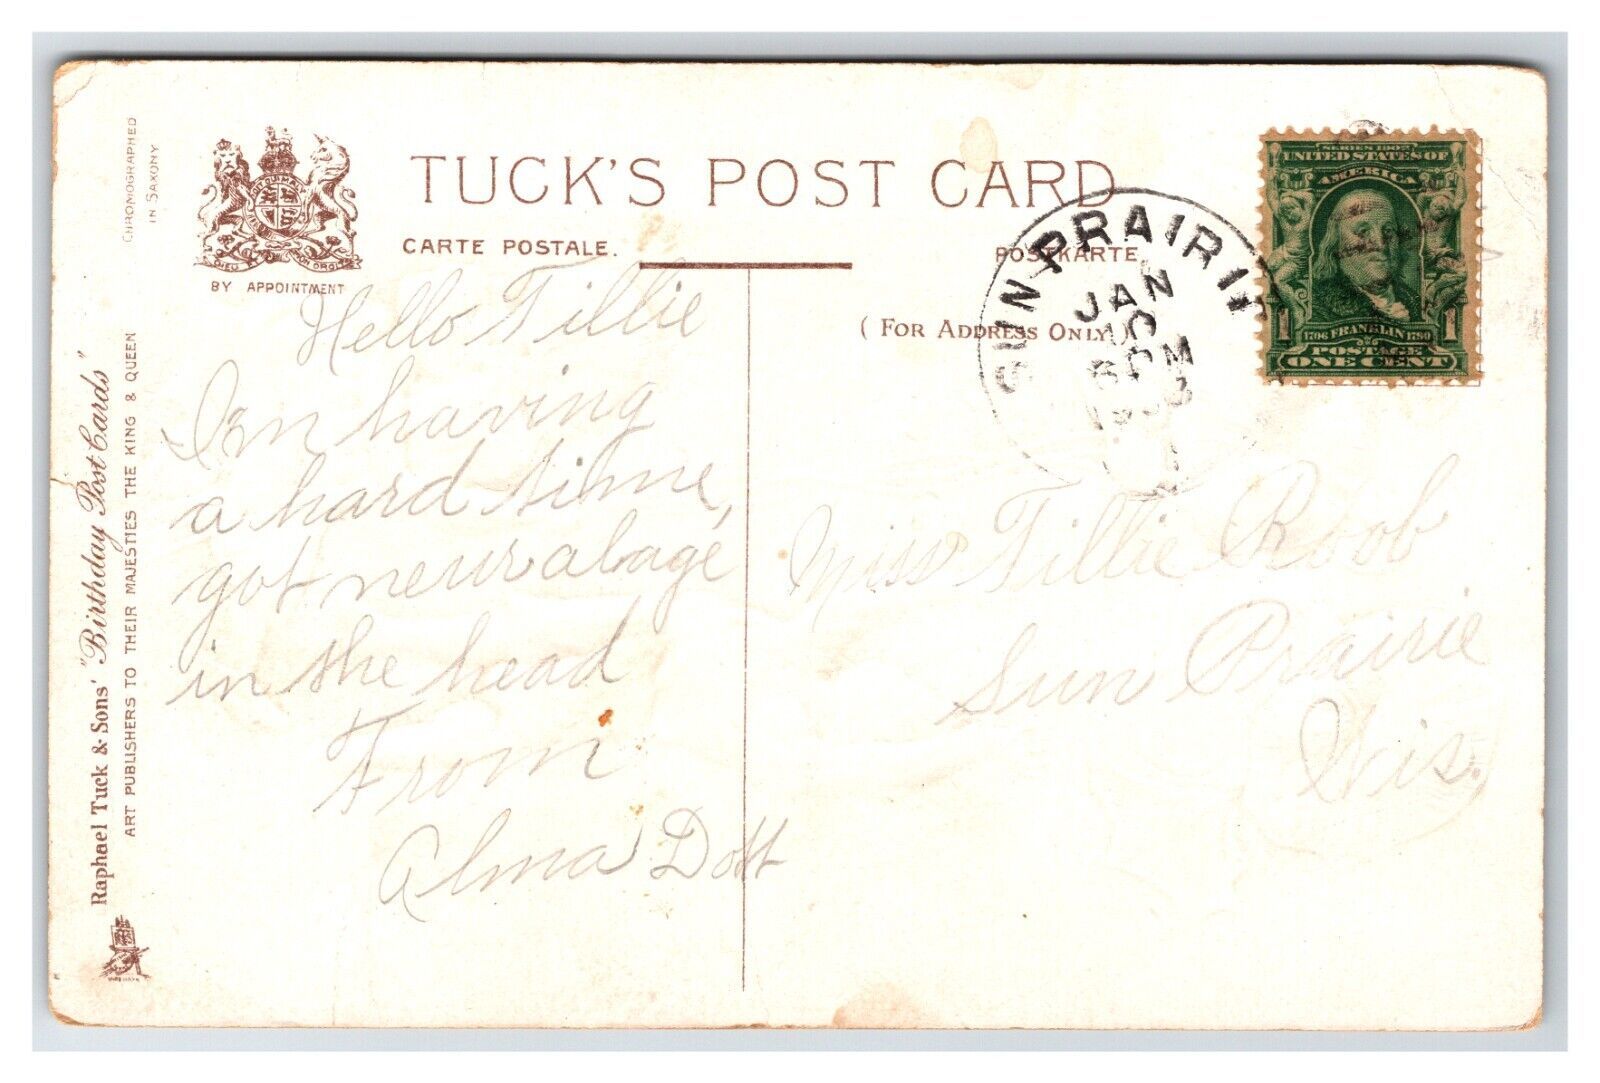 CHROMOGRAPHED
IN SAXONY
DIEU ET MON DROIT
BY APPOINTMENT
TUCK'S POST CARD
CARTE POSTALE.
POSTKARTE.
(FOR ADDRESS ONLY.)
SUN PRAIRIE
JAN
10
PM
SERIES 1902
UNITED STATES OF
AMERICA
1 1
1706 FRANKLIN 1790
POSTAGE
ONE CENT
Raphael Tuck & Sons' "Birthday Post Cards"
ART PUBLISHERS TO THEIR MAJESTIES THE KING & QUEEN
Hello Tillie
I'm having
a hard time,
got neuralage
in the head
From
Alma Dott
Miss Tillie Roob
Sun Prairie
Wis.